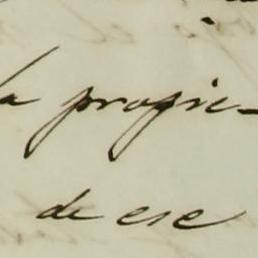 la propie-
de ese